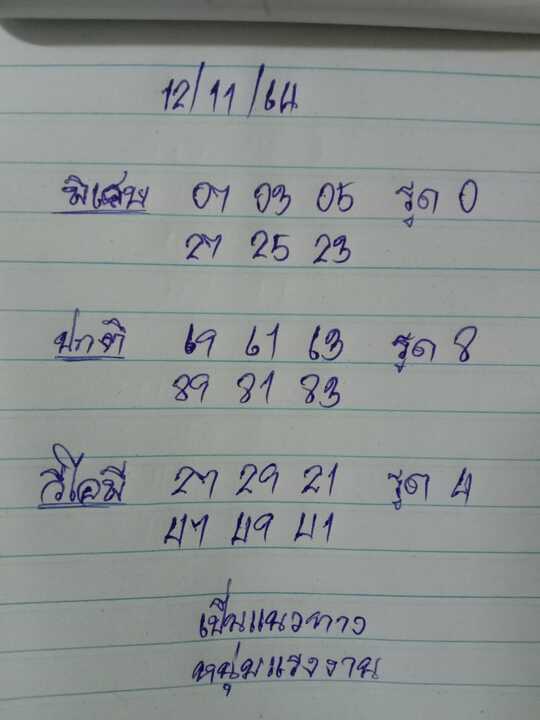 12/11/64
พิเศษ 07 03 05 รูด 0
27 25 23
ปกติ 69 61 63 รูด 8
89 81 83
วีไอพี 27 29 21 รูด 4
47 49 41
เป็นแนวทาง
หนุ่มแรงงาน